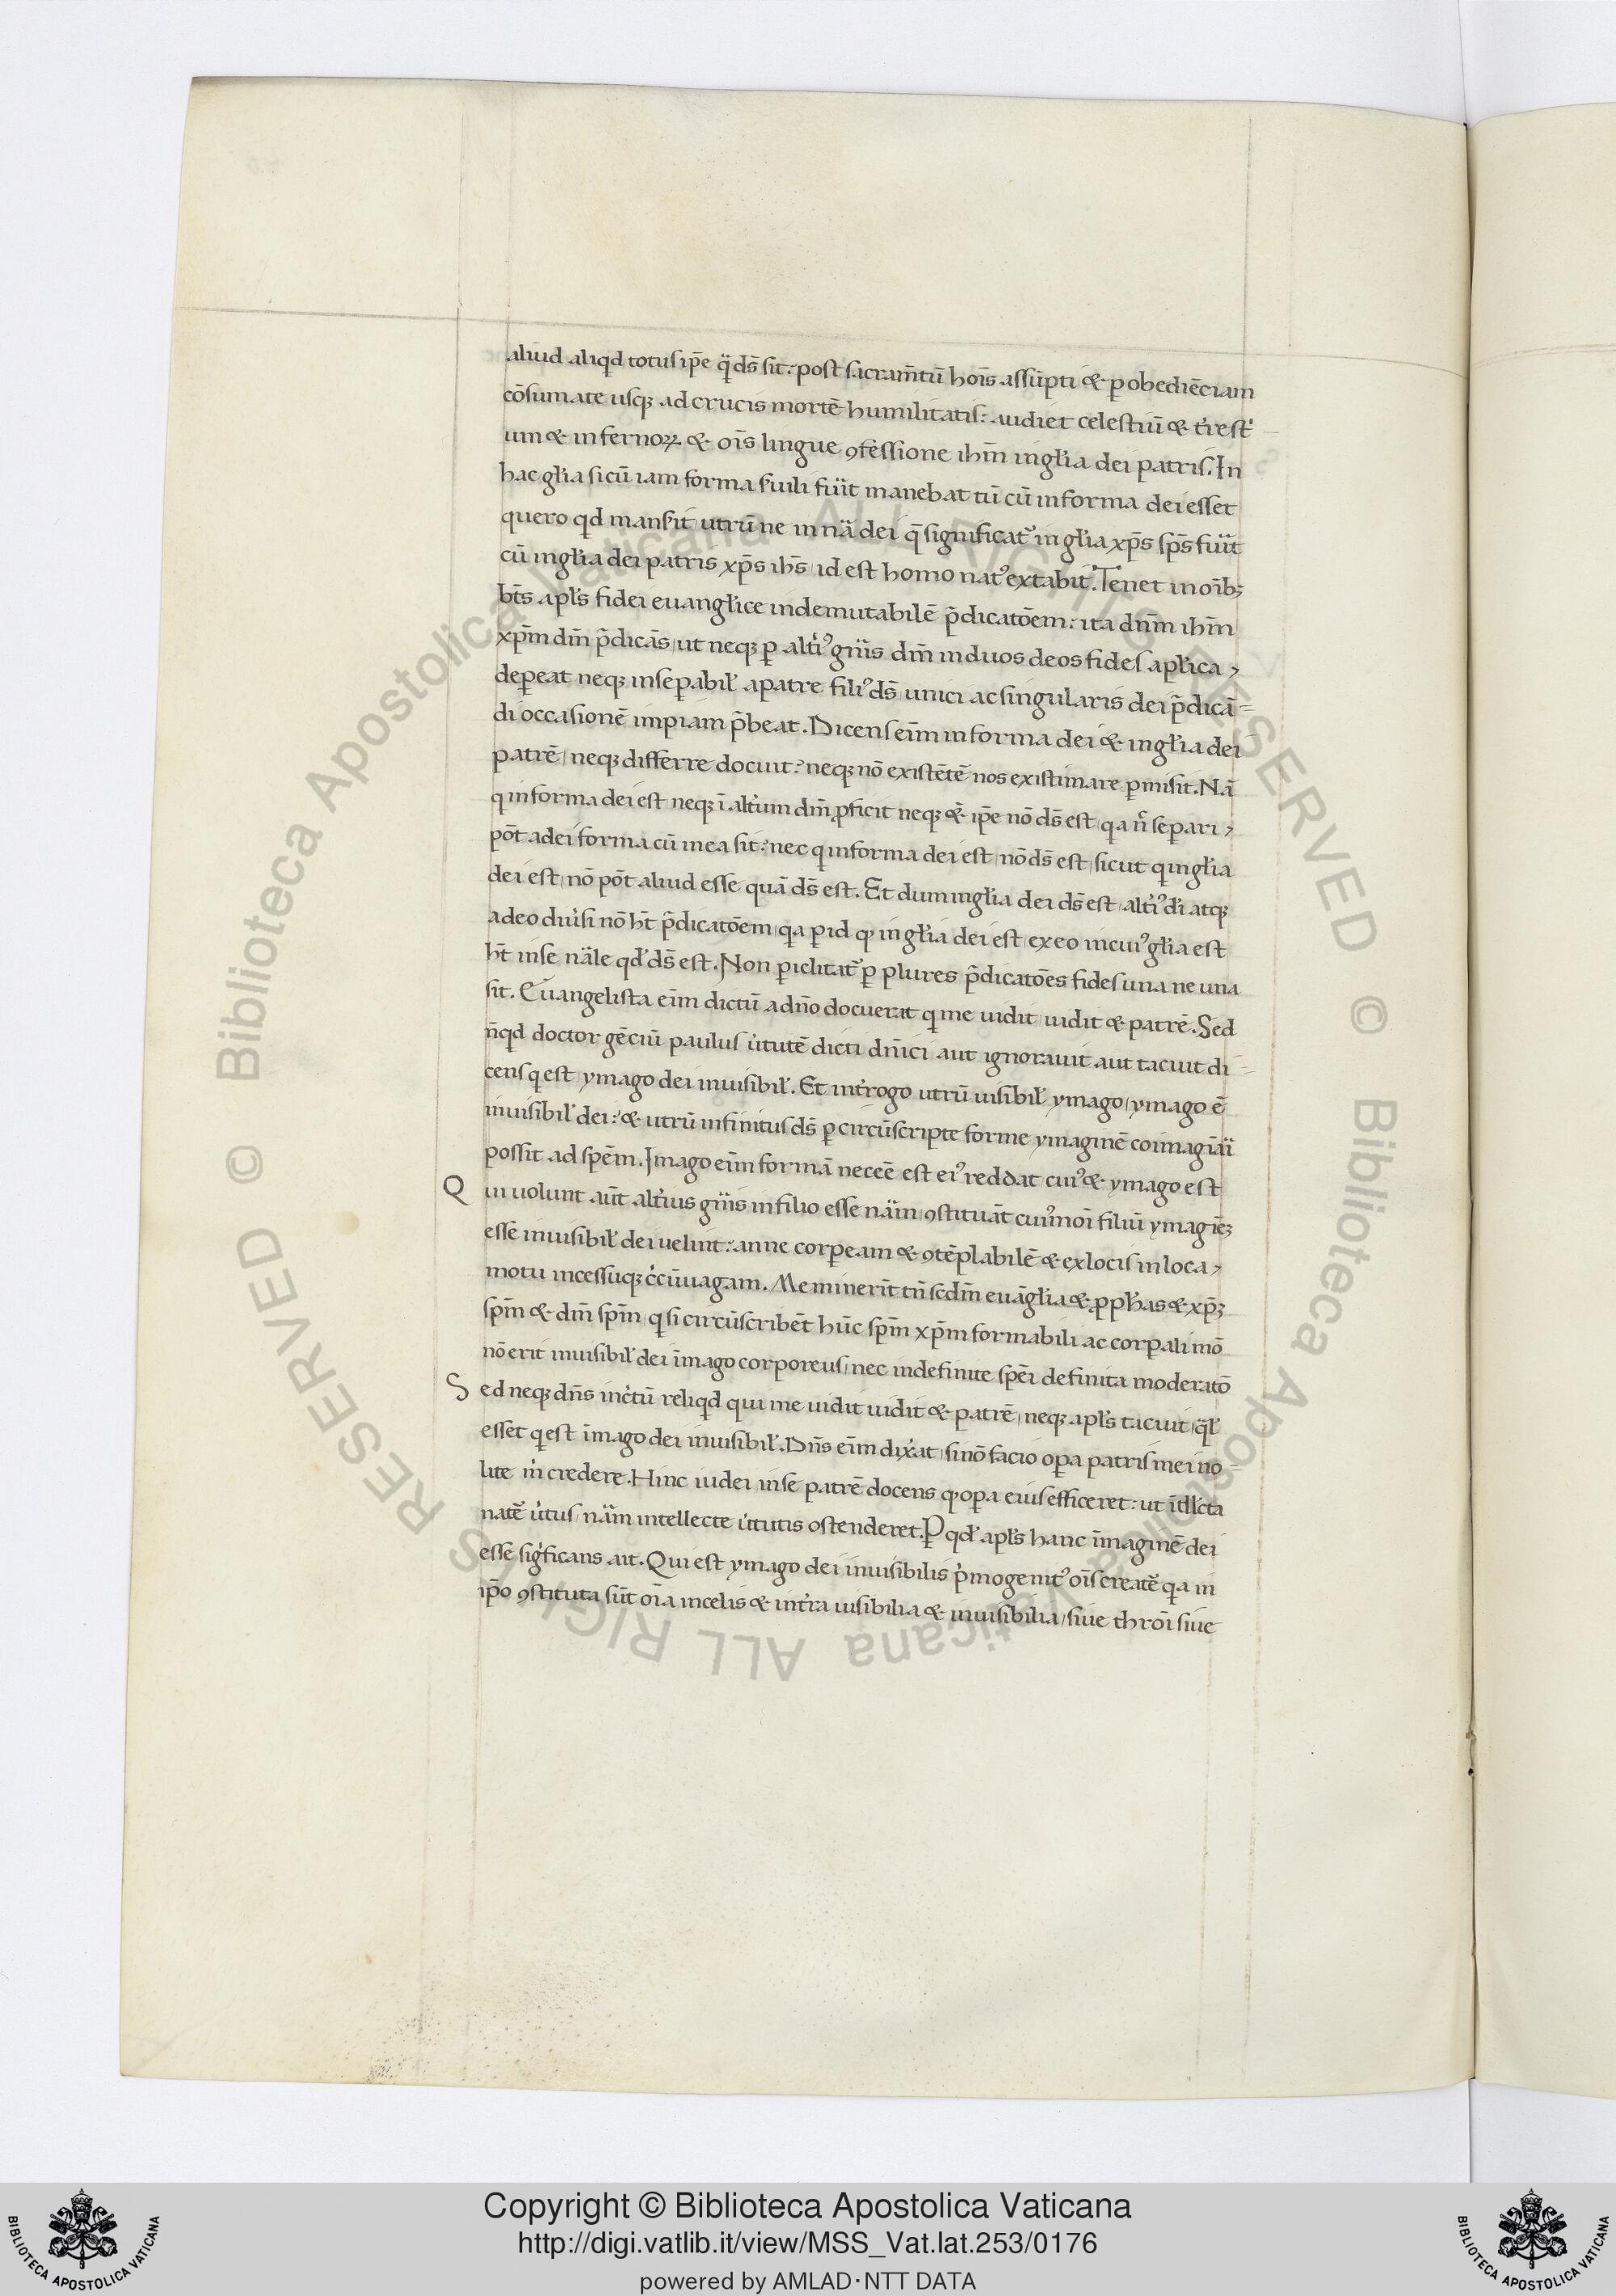 aliud aliqd totus ip̄e q̈ ds̄ sit: post sacram̄tū hoīs assūpti & p obediēciam
cōsumate usqꝫ ad crucis mortē humilitatis: audiet celestiū & t̕rest̕
um & infernoꝝ & oīs lingue ꝯfessione ihm̄ in gl̕ia dei patris. In
hac gl̕ia si cū iam forma s̕uili fu̕it manebat tū cū in forma dei esset
quero qd mansit utrū ne in nā dei q̄ significat᷒ in gl̕ia xp̄s sp̄s fu̕it
cū in gl̕ia dei patris xp̄s ihs̄ id est homo natꝰ extabit. Tenet in oībꝫ
bt̄s apl̕s fidei evangl̕ice indemutabilē p̄dicatōem: ita dnm̄ ihm̄
xp̄m dm̄ p̄dicās ut neqꝫ ꝑ alt̕iꝰ gn̄is dm̄ in duos deos fides apl̕ica
deꝑeat neqꝫ inseꝑabil̕ a patre filiꝰ ds̄ unici ac singularis dei p̄dicā=
di occasionē impiam p̄beat. Dicens eīm in forma dei & in gl̕ia dei
patrē neqꝫ differre docuit: neqꝫ nō existētē nos existimare ꝑmisit. Nā
q in forma dei est neqꝫ ī alt̕um dm̄ ꝓficit neqꝫ & ip̄e nō ds̄ est qa n̄ seꝑari
pōt a dei forma cū in ea sit: nec q in forma dei est nō ds̄ est sicut q in gl̕ia
dei est nō pōt aliud esse quā ds̄ est. Et dum in gl̕ia dei ds̄ est alt̕iꝰ d̕i atqꝫ
a deo diu̕si nō ht̄ p̄dicatōem qa ꝑ id qꝫ in gl̕ia dei est ex eo in cuiꝰ gl̕ia est
ht̄ in se nāle qd̕ ds̄ est. Non ꝑiclitat᷒ ꝑ plures p̄dicatōes fides una ne una
sit. Euangelista eīm dictū a dn̄o docuerat q me uidit uidit & patrē. Sed
n̄qd doctor gēciū paulus u̕tutē dicti dn̄ici aut ignorauit aut tacuit di=
cens q est ymago dei inuisibil̕. Et int̕rogo utrū uisibil̕ ymago ymago ē
inuisibil̕ dei: & utrū infinitus ds̄ ꝑ circūscripte forme ymaginē coimagināi
possit ad spēm. Imago eīm formā neceē est eiꝰ reddat cuiꝰ & ymago est
Q ui uolunt aūt alt̕ius gn̄is in filio esse nām ꝯstituāt cuiꝰmoi filiū ymagiēꝫ
esse inuisibil̕ dei uelint: anne corpeam & ꝯtēplabilē & ex locis in loca
motu incessuqꝫ c̕cūuagam. Meminerīt tn̄ scdm̄ euāgl̕ia & ꝓph̕as & xp̄ꝫ
sp̄m & dm̄ sp̄m q si circūscribēt hūc sp̄m xp̄m formabili ac corꝑali mō
nō erit inuisibil̕ dei īmago corporeus nec indefinite spēi definita moderatō
S ed neqꝫ dn̄s inc̕tū reliqd qui me uidit uidit & patrē neqꝫ apl̕s tacuit q̄l̕
esset q est īmago dei inuisibil̕. Dn̄s eīm dix̕at si nō facio oꝑa patris mei no=
lite m̕ credere. Hinc iudei in se patrē docens qꝫ oꝑa eius efficeret: ut ītll̕cta
natē u̕tus nām intellecte u̕tutis ostenderet. P qd̕ apl̕s hanc īmaginē dei
esse sig̕ficans ait. Qui est ymago dei inuisibilis p̕mogenitꝰ oīs creatē qa in
ip̄o ꝯstituta sūt oīa in celis & in t̕ra uisibilia & inuisibilia siue throni siue
Copyright © Biblioteca Apostolica Vaticana
http://digi.vatlib.it/view/MSS_Vat.lat.253/0176
powered by AMLAD·NTT DATA
BIBLIOTECA APOSTOLICA VATICANA
BIBLIOTECA APOSTOLICA VATICANA
© Biblioteca Apostolica Vaticana ALL RIGHTS RESERVED © Biblioteca Apostolica Vaticana ALL RIGHTS RESERVED